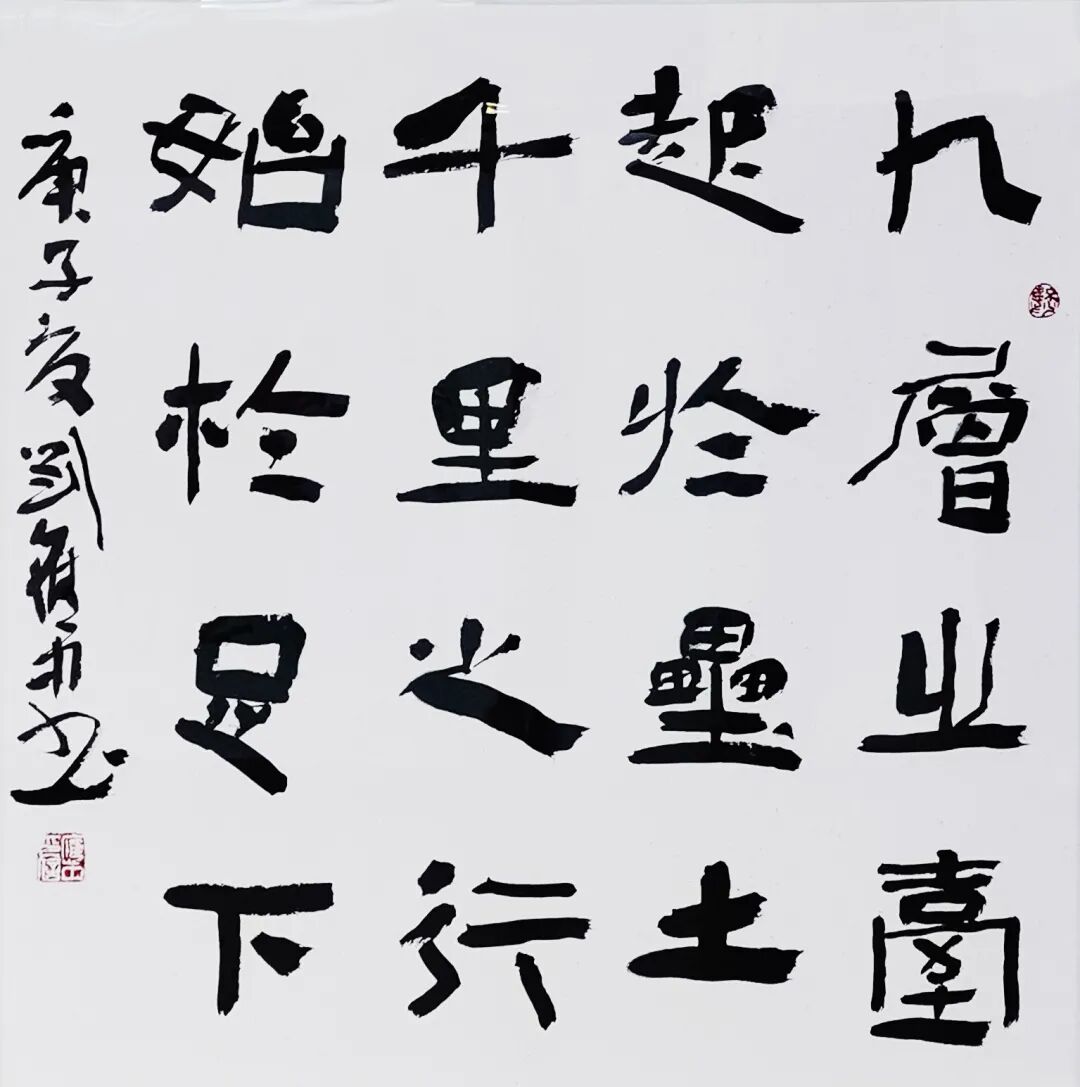 九層之臺
起於壘土
千里之行
始於足下
庚子夏劉书